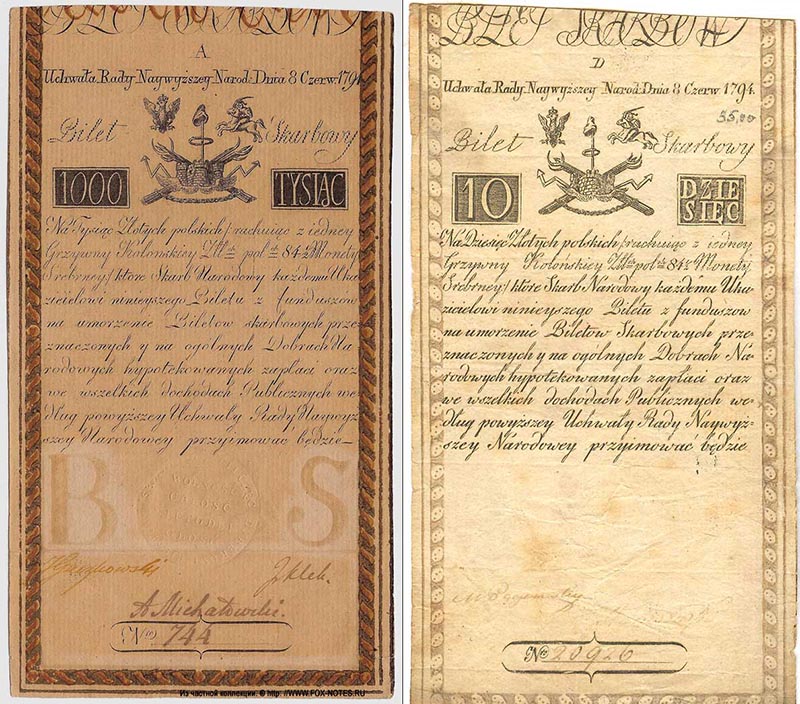 BILET SKARBOWY
A
Uchwała Rady Naywyższey Narod: Dnia 8 Czerw. 1794
Bilet Skarbowy
1000 TYSIĄC
Na Tysiąc Złotych polskich / rachuiąc z iedney
Grzywny Kolońskiey Złł pol 84½ Monety
Srebrney / które Skarb Narodowy każdemu Uka
zicielowi ninieyszego Biletu z funduszów
na umorzenie Biletów skarbowych prze
znaczonych y na ogólnych Dobrach Na
rodowych hypotekowanych zapłaci oraz
we wszelkich dochodach Publicznych we-
dług powyższey Uchwały Rady Naywyż
szey Narodowey przyimować będzie
B S
A Michałowski.
No 744
Из частной коллекции. © http: //WWW.FOX-NOTES.RU
BILET SKARBOWY
D
Uchwała Rady Naywyższey Narod: Dnia 8 Czerw 1794.
55,00
Bilet Skarbowy
10 DZIE
SIĘĆ
Na Dziesięć Złotych polskich / rachuiąc z iedney
Grzywny Kolońskiey Złł pol 84½ Monety
Srebrney / które Skarb Narodowy każdemu Uka
zicielowi ninieyszego Biletu z funduszow
na umorzenie Biletów Skarbowych prze-
znaczonych y na ogólnych Dobrach Na-
rodowych hypotekowanych zapłaci oraz
we wszelkich dochodach Publicznych we-
dług powyższey Uchwały Rady Naywyż-
szey Narodowey przyimować będzie
No 20926